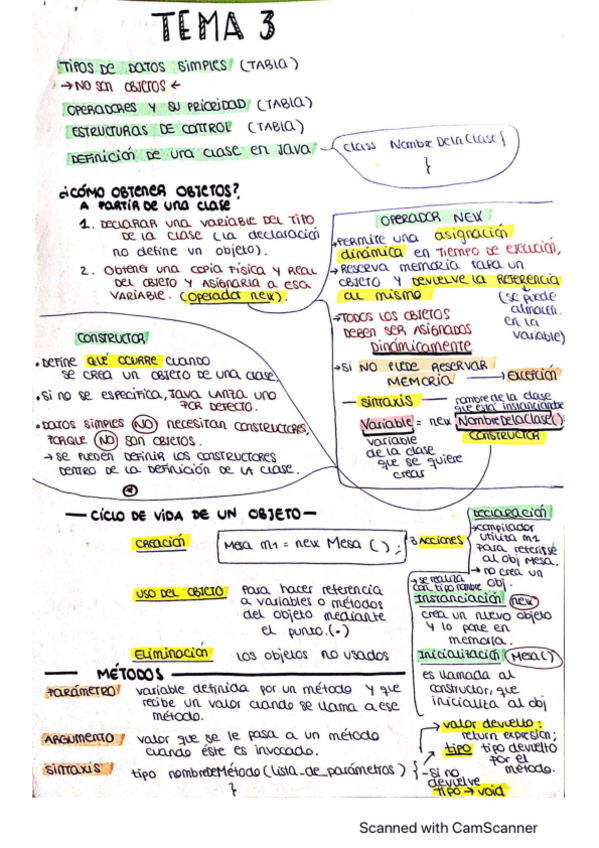 TEMA 3
TIPOS DE DATOS SIMPLES (TABLA)
→ NO SON OBJETOS ←
OPERADORES Y SU PRIORIDAD (TABLA)
ESTRUCTURAS DE CONTROL (TABLA)
DEFINICIÓN DE UNA CLASE EN JAVA
class NombreDeLaClase {
}
¿CÓMO OBTENER OBJETOS?
A PARTIR DE UNA CLASE
1. DECLARAR UNA VARIABLE DEL TIPO
DE LA CLASE (LA DECLARACIÓN
NO DEFINE UN OBJETO).
2. OBTENER UNA COPIA FÍSICA Y REAL
DEL OBJETO Y ASIGNARLA A ESA
VARIABLE. (Operador new).
OPERADOR NEW
→ PERMITE UNA asignación
dinámica EN TIEMPO DE EJECUCIÓN,
→ RESERVA MEMORIA PARA UN
OBJETO Y DEVUELVE LA REFERENCIA
AL MISMO
(se puede
almacen.
en la
variable)
→ TODOS LOS OBJETOS
DEBEN SER ASIGNADOS
DINÁMICAMENTE
→ SI NO PUEDE RESERVAR
MEMORIA → EXCEPCIÓN
— SINTAXIS —
nombre de la clase
que está instanciando
Variable = new NombreDeLaClase();
variable
de la clase
que se quiere
crear
CONSTRUCTOR
CONSTRUCTOR
• DEFINE QUÉ OCURRE CUANDO
SE CREA UN OBJETO DE UNA CLASE.
• SI NO SE ESPECIFICA, JAVA LANZA UNO
POR DEFECTO.
• DATOS SIMPLES NO NECESITAN CONSTRUCTORES,
PORQUE NO SON OBJETOS.
→ SE PUEDEN DEFINIR LOS CONSTRUCTORES
DENTRO DE LA DEFINICIÓN DE LA CLASE.
— CICLO DE VIDA DE UN OBJETO —
CREACIÓN
Mesa m1 = new Mesa ();
3 ACCIONES
DECLARACIÓN
→ compilador
utiliza m1
para referirse
al obj Mesa.
→ no crea un
obj.
→ se realiza
con tipo nombre
USO DEL OBJETO
Para hacer referencia
a variables o métodos
del objeto mediante
el punto. (.)
Instanciación new
crea un nuevo objeto
y lo pone en
memoria.
Eliminación
los objetos no usados
Inicialización Mesa()
es llamada al
constructor, que
inicializa al obj
— MÉTODOS —
PARÁMETRO
variable definida por un método y que
recibe un valor cuando se llama a ese
método.
ARGUMENTO
valor que se le pasa a un método
cuando éste es invocado.
SINTAXIS
tipo nombreDeMétodo (lista_de_parámetros) {
}
→ valor devuelto:
return expresion;
→ tipo tipo devuelto
por el
método.
- si no
devuelve
tipo → void
Scanned with CamScanner